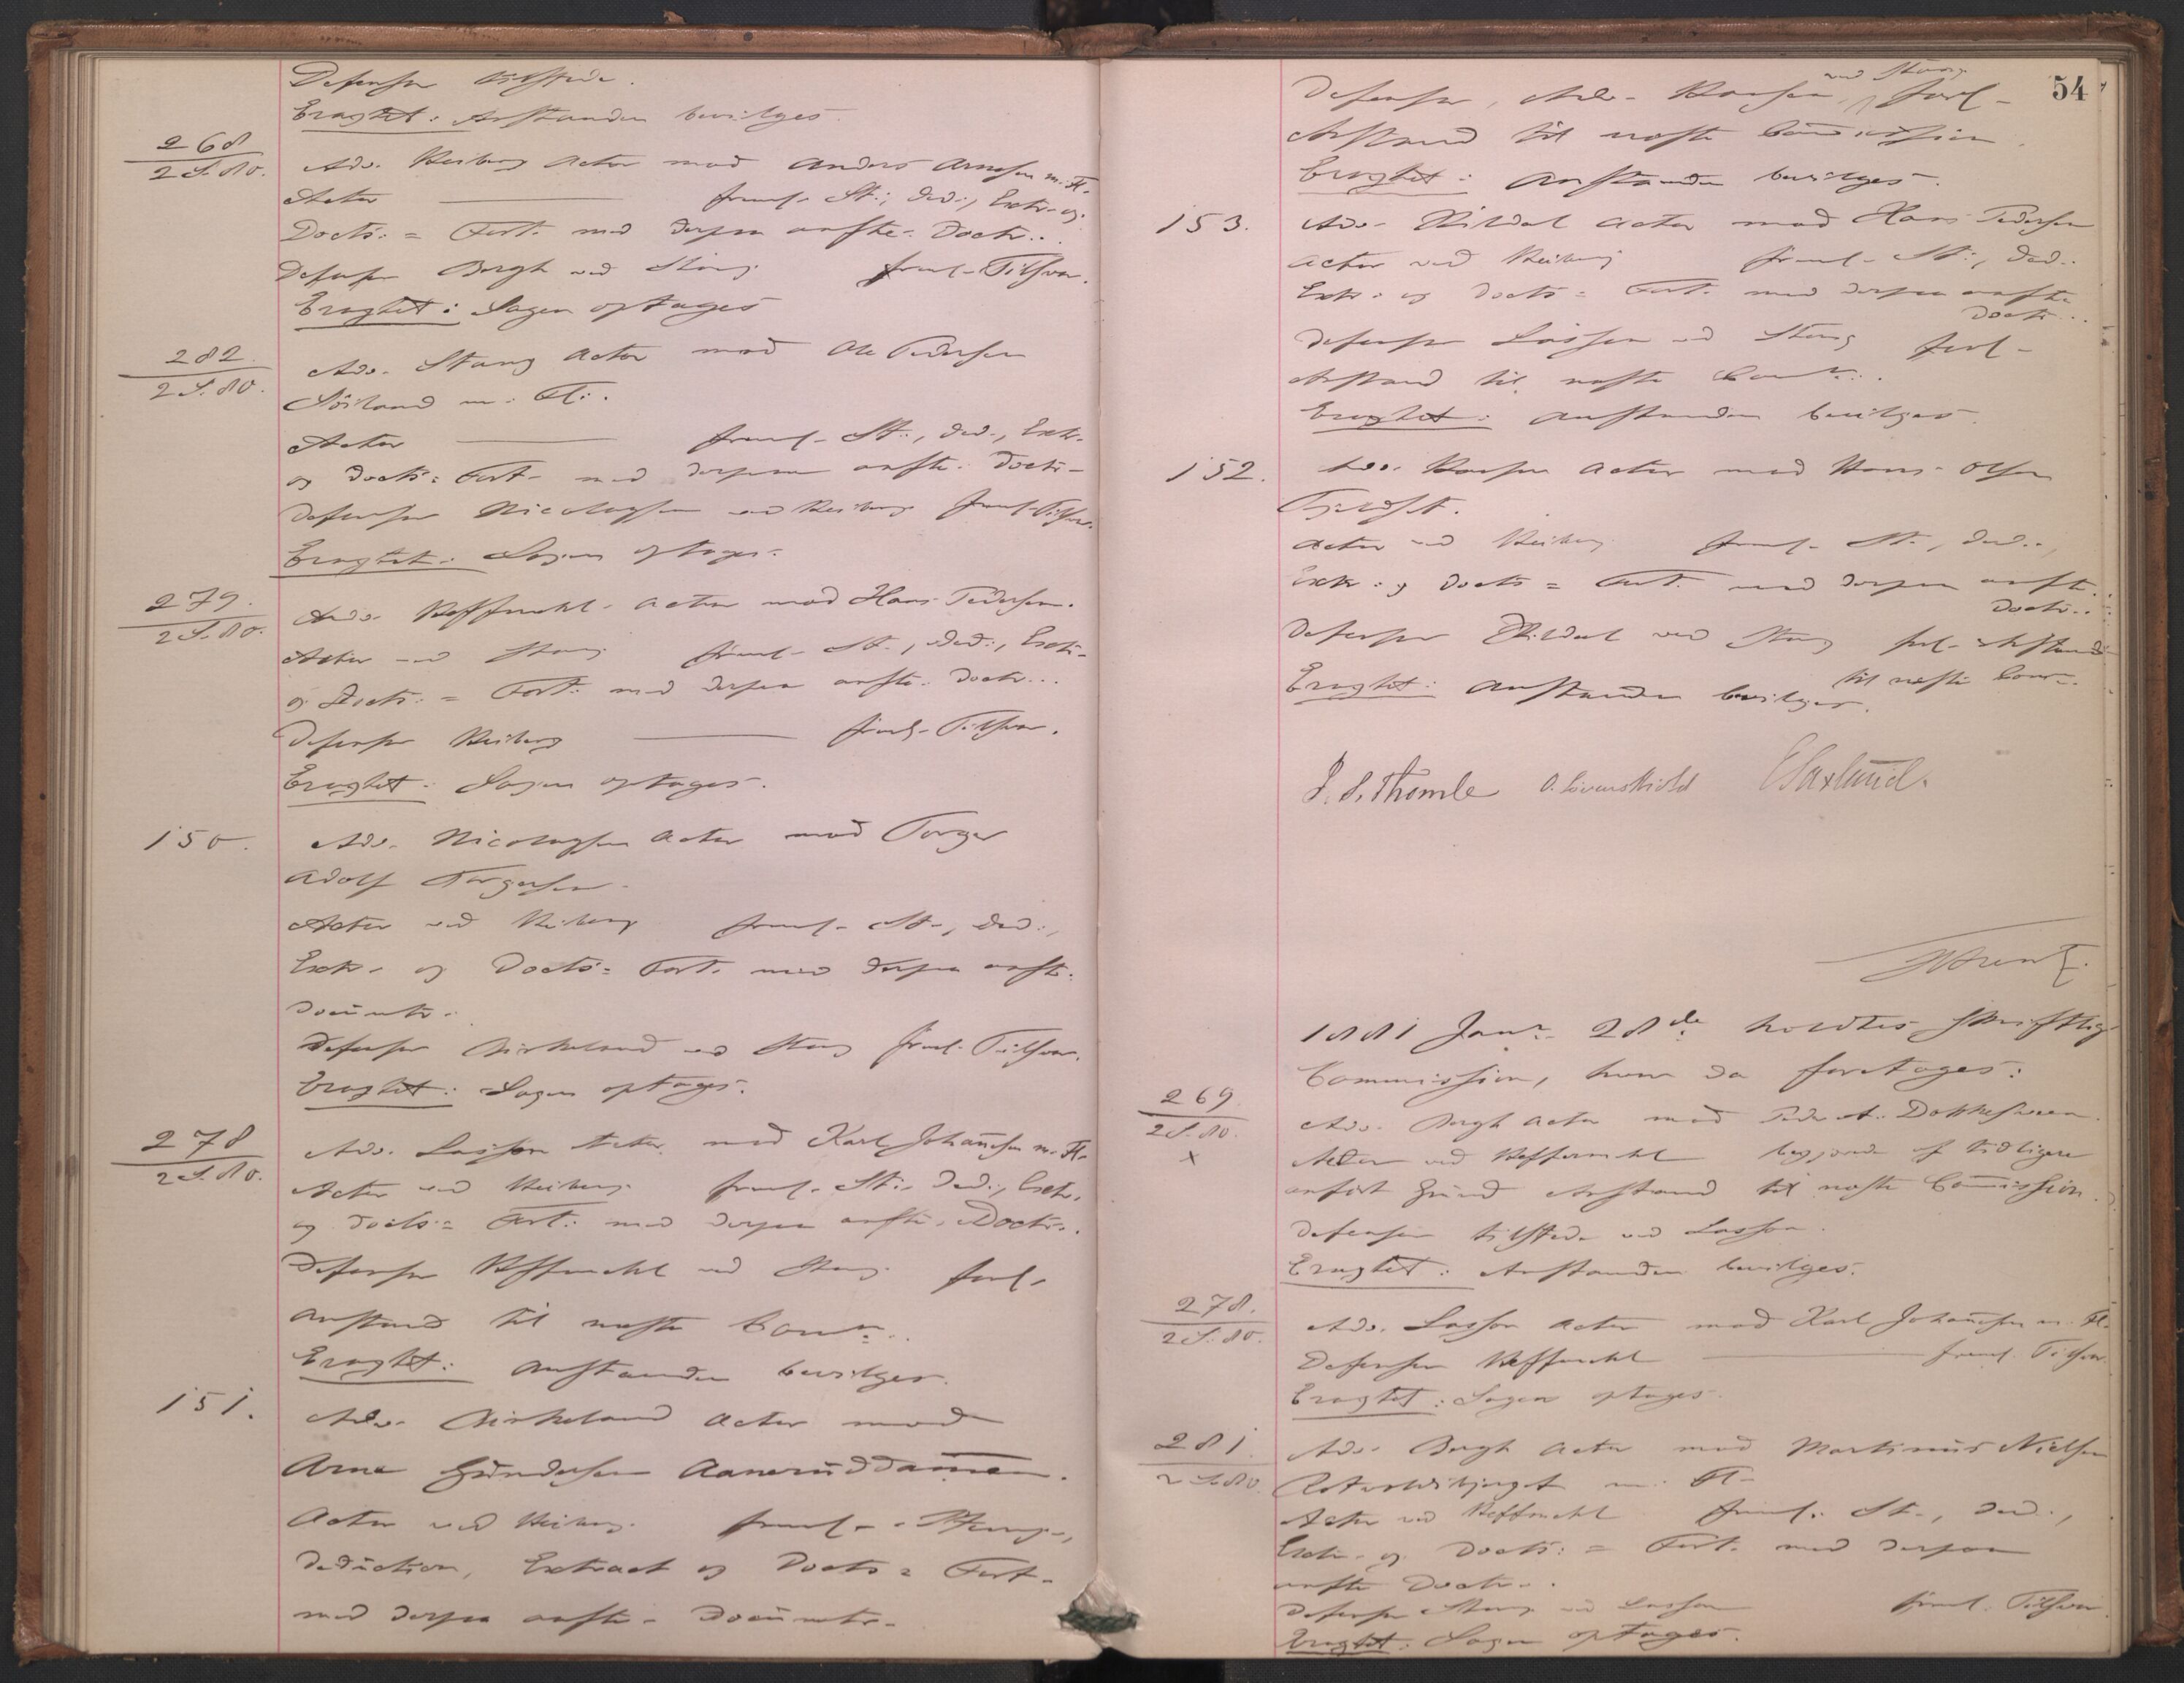 Defensor tilstede.
Eragtet: Anstanden bevilges.
268
2 S. 80.
Adv. Heiberg Actor mod Anders Arnesen m. Fl.
Actor — freml. St., Ded., Extr. og
Docts. = Fort. med derpaa anførte Doctr..
Defensor Bergh ved Stang freml. Tilsvar.
Eragtet: Sagen optages
282.
2 S. 80.
Adv. Stang Actor mod Ole Pedersen
m. Fl.
Actor — freml. St., Ded., Extr.
og Docts. = Fort. med derpaa anførte Doctr.
Defensor Nicolaysen ved Heiberg freml. Tilsvar.
Eragtet: Sagen optages.
279.
2 S. 80.
Adv. Heffermehl Actor mod Hans Pedersen.
Actor ved Stang freml. St., Ded., Extr.
og Docts. = Fort. med derpaa anførte Doctr...
Defensor Heiberg — freml. Tilsvar.
Eragtet: Sagen optages.
150.
Adv. Nicolaysen Actor mod Torger
Adolf Torgersen.
Actor ved Heiberg freml. St., Ded.,
Extr. og Docts. = Fort. med derpaa anførte
Documenter.
Defensor Birkeland ved Stang freml. Tilsvar.
Eragtet: Sagen optages.
278
2 S. 80.
Adv. Lasson Actor mod Karl Johannesen m. Fl.
Actor ved Heiberg freml. St., Ded., Extr.
og Docts. = Fort. med derpaa anførte Doctr..
Defensor Heffermehl ved Stang forl.
Anstand til næste Comn..
Eragtet: Anstanden bevilges.
151.
Adv. Birkeland Actor mod
Arne Gundersen Aaneruddammen.
Actor ved Heiberg freml. Stevning,
Deduction, Extract og Docts. = Fort.
med derpaa anførte Documenter.
54
Defensor, Adv. ved Stang, forl.
Anstand til næste Commission.
Eragtet: Anstanden bevilges.
153.
Adv. Kildal Actor mod Hans Pedersen
Actor ved Heiberg freml. St., Ded.
Extr. og Docts. = Fort. med derpaa anførte
Doctr...
Defensor Lasson ved Stang forl.
Anstand til næste Comn..
Eragtet: Anstanden bevilges.
152.
Adv. Actor mod Hans Olsen
Actor ved Heiberg freml. St., Ded.,
Extr. og Docts. = Fort. med derpaa anførte
Doctr..
Defensor Kildal ved Stang forl. Anstand
til næste Comn.
Eragtet: Anstanden bevilges.
J. S. Thomle O. Løvenskiold E Saxlund.
1881 Janr. 28de holdtes skriftlig
Commission, hvor da foretages:
269
2 S. 80.
x
Adv. Bergh Actor mod Peder A. Dokkesveen.
Actor ved Heffermehl begjærede af tidligere
anført Grund Anstand til næste Commission.
Defensor tilstede ved Lasson.
Eragtet: Anstanden bevilges.
278.
2 S. 80.
Adv. Lasson Actor mod Karl Johannesen m. Fl.
Defensor Heffermehl — freml. Tilsvar.
Eragtet: Sagen optages.
281.
2 S. 80.
Adv. Bergh Actor mod Martinius Nielsen
m. Fl.
Actor ved Heffermehl freml. St., Ded.,
Extr. og Docts. = Fort. med derpaa
anførte Doctr..
Defensor Stang ved Lasson freml. Tilsvar.
Eragtet: Sagen optages.